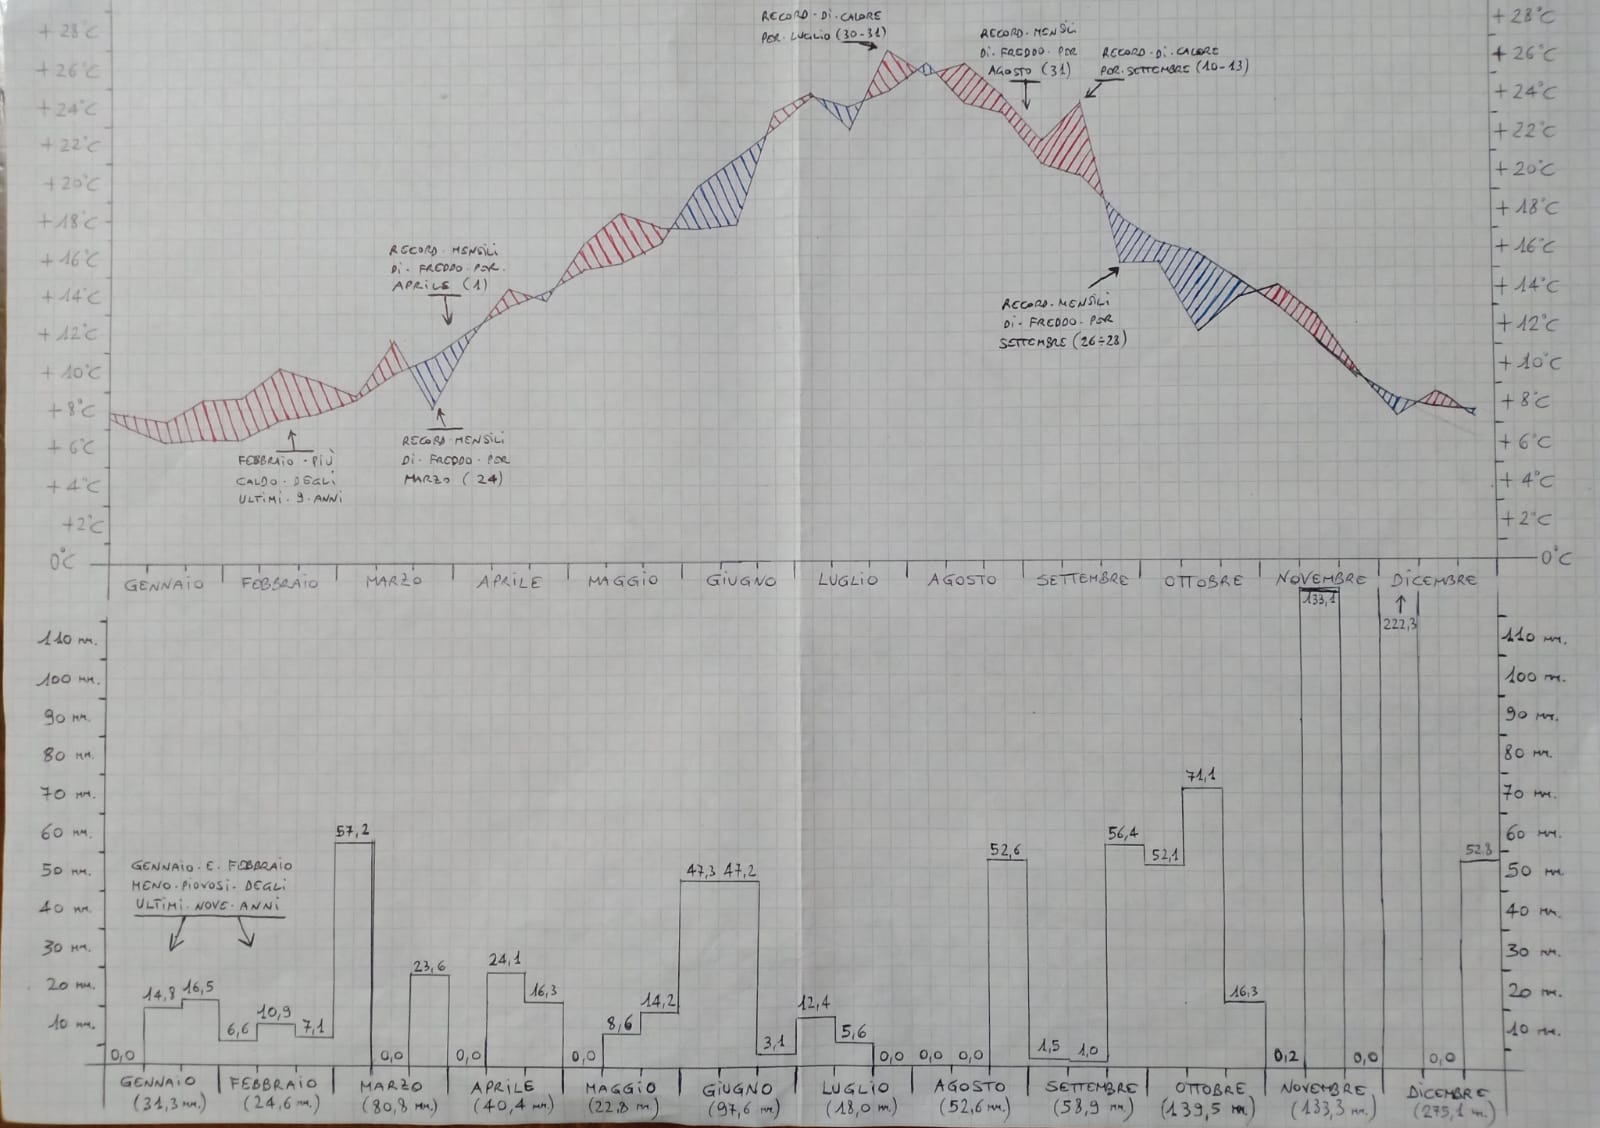 +28°C
+26°C
+24°C
+22°C
+20°C
+18°C
+16°C
+14°C
+12°C
+10°C
+8°C
+6°C
+4°C
+2°C
0°C
RECORD·DI·CALORE
PER·LUGLIO (30-31)
RECORD·MENSILI
DI·FREDDO·PER
AGOSTO (31)
RECORD·DI·CALORE
PER·SETTEMBRE (10-13)
RECORD·MENSILI
DI·FREDDO·PER·
APRILE (1)
RECORD·MENSILI
DI·FREDDO·PER
SETTEMBRE (26÷28)
FEBBRAIO·PIÙ
CALDO·DEGLI
ULTIMI·9·ANNI
RECORD·MENSILI
DI·FREDDO·PER
MARZO (24)
+28°C
+26°C
+24°C
+22°C
+20°C
+18°C
+16°C
+14°C
+12°C
+10°C
+8°C
+6°C
+4°C
+2°C
0°C
GENNAIO FEBBRAIO MARZO APRILE MAGGIO GIUGNO LUGLIO AGOSTO SETTEMBRE OTTOBRE NOVEMBRE DICEMBRE
110 mm.
100 mm.
90 mm.
80 mm.
70 mm.
60 mm.
50 mm.
40 mm.
30 mm.
20 mm.
10 mm.
GENNAIO·E·FEBBRAIO
MENO·PIOVOSI·DEGLI
ULTIMI·NOVE·ANNI
0,0 14,8 16,5 6,6 10,9 7,1 57,2 0,0 23,6 0,0 24,1 16,3 0,0 8,6 14,2 47,3 47,2 3,1 12,4 5,6 0,0 0,0 0,0 52,6 1,5 1,0 56,4 52,1 71,1 16,3 0,2 133,1 0,0 222,3 0,0 52,8
110 mm.
100 mm.
90 mm.
80 mm.
70 mm.
60 mm.
50 mm.
40 mm.
30 mm.
20 mm.
10 mm.
GENNAIO FEBBRAIO MARZO APRILE MAGGIO GIUGNO LUGLIO AGOSTO SETTEMBRE OTTOBRE NOVEMBRE DICEMBRE
(31,3 mm.) (24,6 mm.) (80,8 mm.) (40,4 mm.) (22,8 mm.) (97,6 mm.) (18,0 mm.) (52,6 mm.) (58,9 mm.) (139,5 mm.) (133,3 mm.) (275,1 mm.)